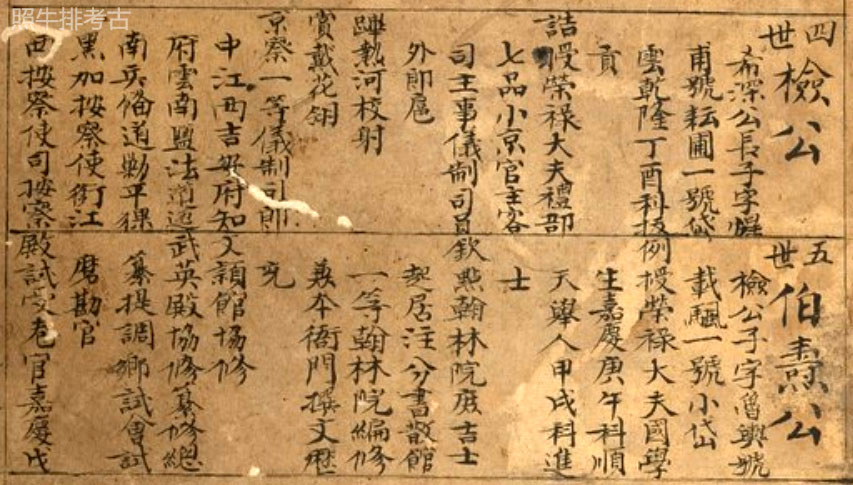 照牛排考古
四世
檢公
希深公長子字惺
甫號耘圃一號岱
雲乾隆丁酉科拔
貢
誥授榮祿大夫禮部
七品小京官主客
司主事儀制司員
外郎扈
蹕熱河校射
賞戴花翎
京察一等儀制司郎
中江西吉安府知
府雲南鹽法道迤
南兵俻道勦平猓
黑加按察使銜江
西按察使司按察
五世
伯壽公
檢公子字魯興號
載颿一號小岱
例授榮祿大夫國學
生嘉慶庚午科順
天舉人甲戌科進
士
欽點翰林院庶吉士
起居注分書散館
一等翰林院編修
兼本衙門撰文歷
充
文穎館協修
武英殿協修纂修總
纂提調鄉試會試
磨勘官
殿試受卷官嘉慶戊